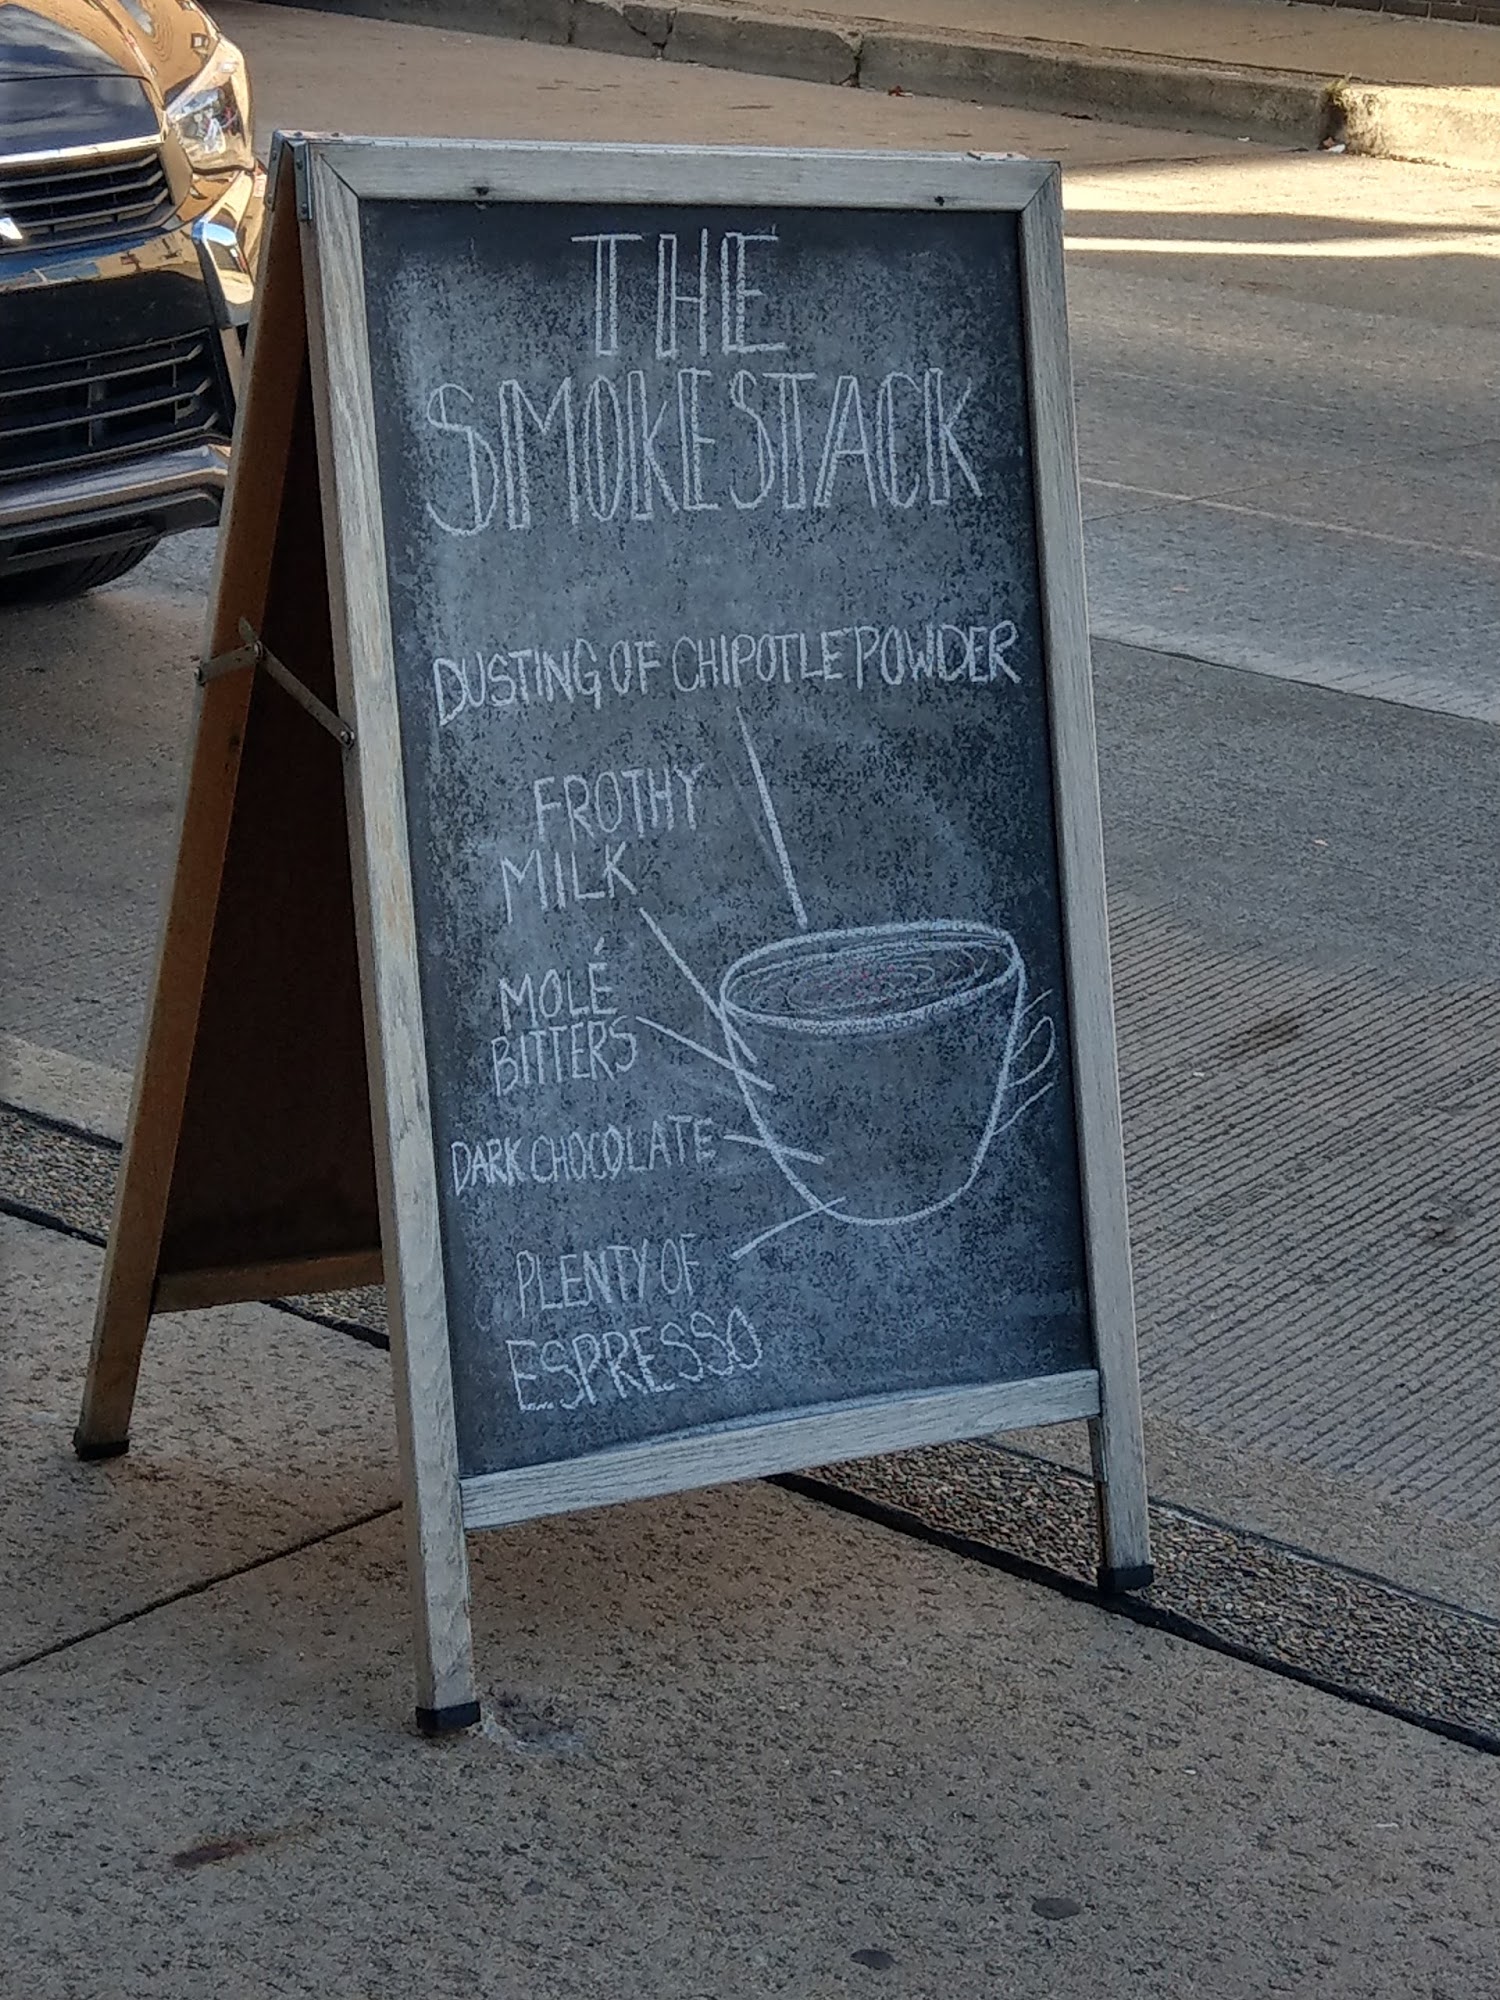 THE
SMOKESTACK
DUSTING OF CHIPOTLE POWDER
FROTHY
MILK
MOLÉ
BITTERS
DARK CHOCOLATE
PLENTY OF
ESPRESSO